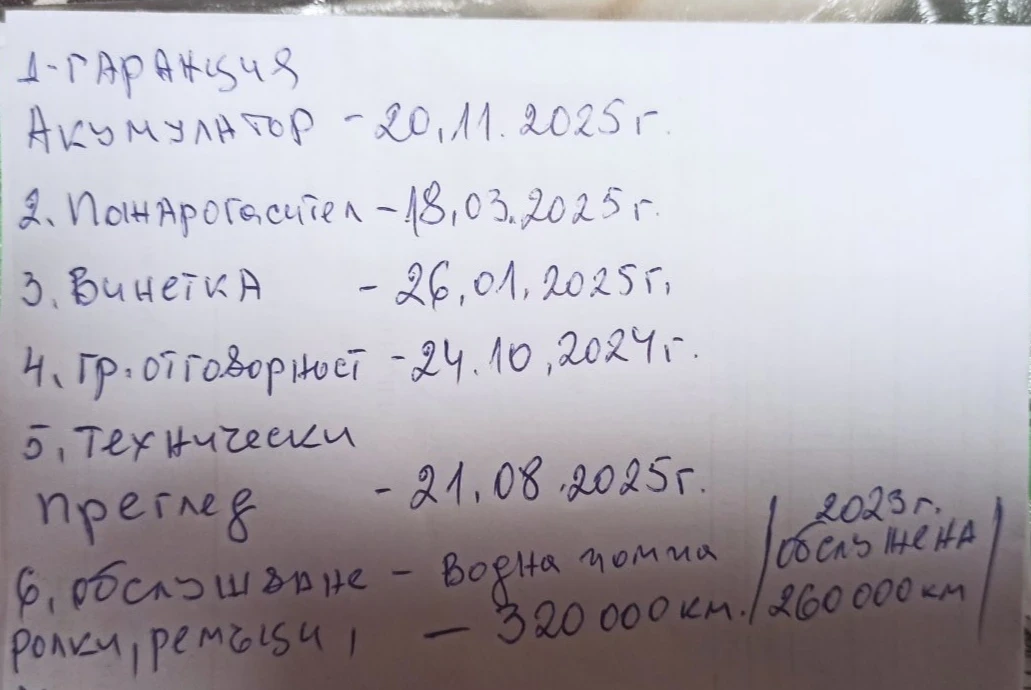 1-ГАРАНЦИЯ
АКУМУЛАТОР - 20,11.2025г.
2. Пожарогасител - 18,03.2025г.
3. Винетка - 26,01.2025г.
4. Гр. отговорност - 24.10,2024г.
5, Технически
преглед - 21,08.2025г.
6, обслужване - водна помпа /2023г. обслужена/
ролки, ремъци, - 320 000 км. /260 000 км/